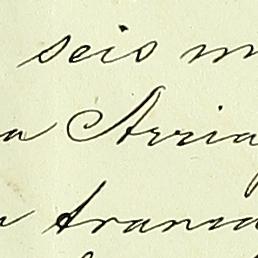 seis m
a Arria
a trans